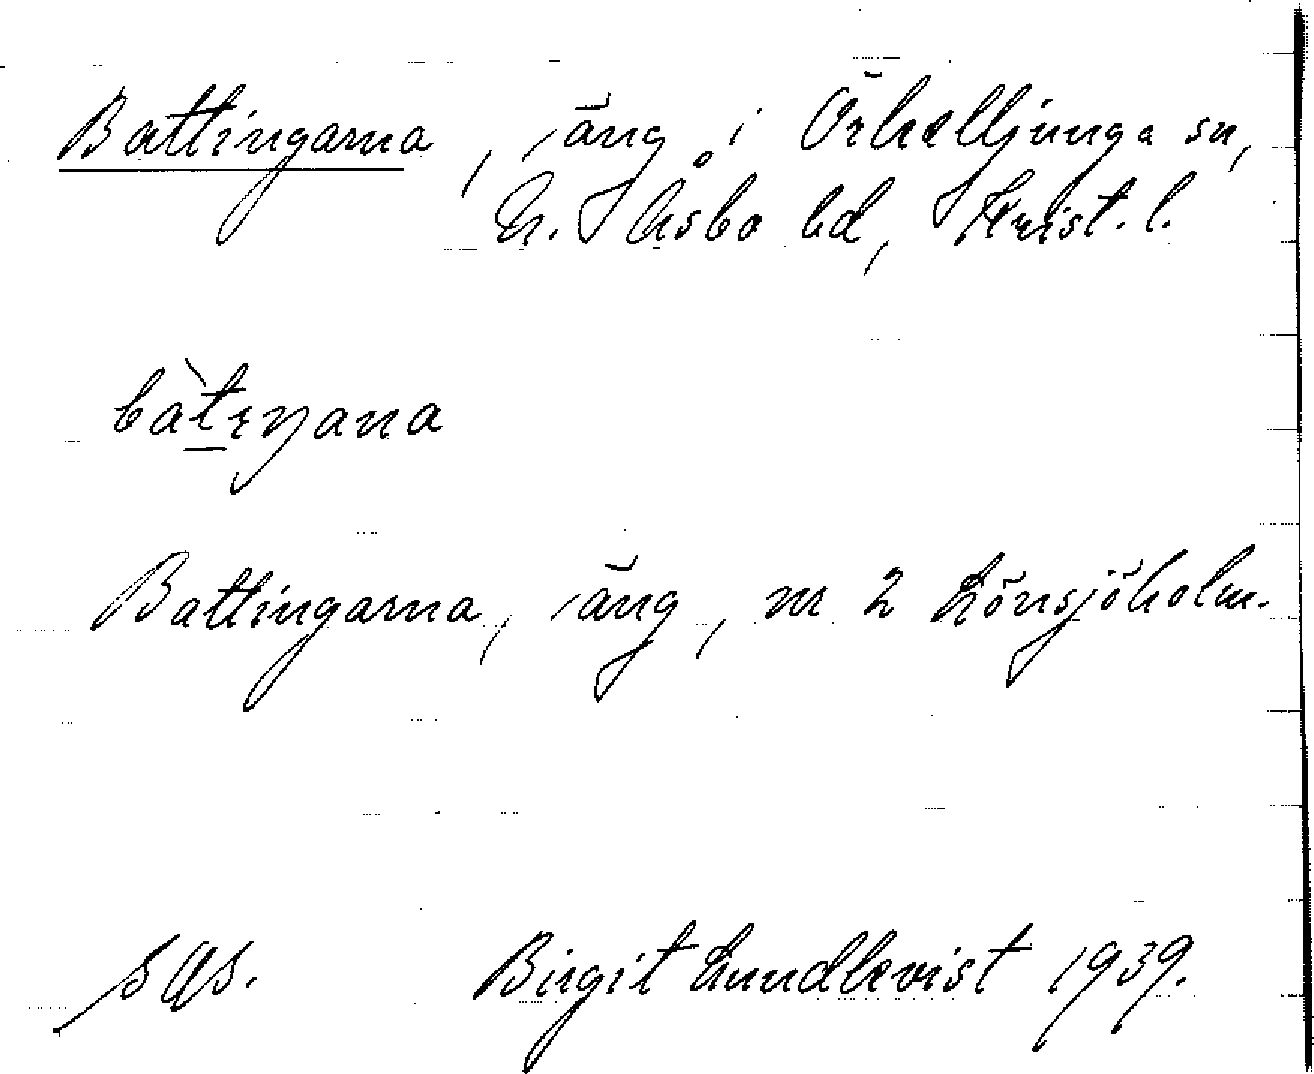 Battingarna, äng i Örkelljunga sn,
N. Åsbo hd, Krist. l.
Battingarna, äng, nr 2 Lönsjöholm.
SOS. Birgit Lundkvist 1939.